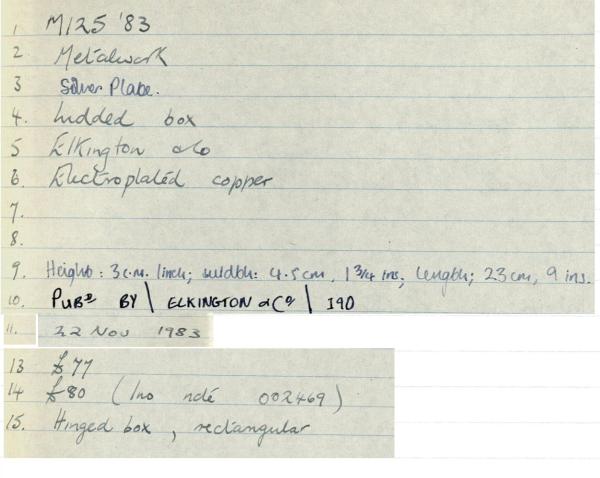 1 M125 '83
2 Metalwork
3 Silver Plate.
4. Lidded box
5 Elkington & Co
6. Electroplated copper
7.
8.
9. Height: 3 c.m. 1 inch; width: 4.5 cm, 1 3/4 ins; length; 23 cm, 9 ins.
10. PUBD BY | ELKINGTON & Co | 190
11. 22 Nov 1983
13 £77
14 £80 (Ino ndé 002469)
15. Hinged box, rectangular